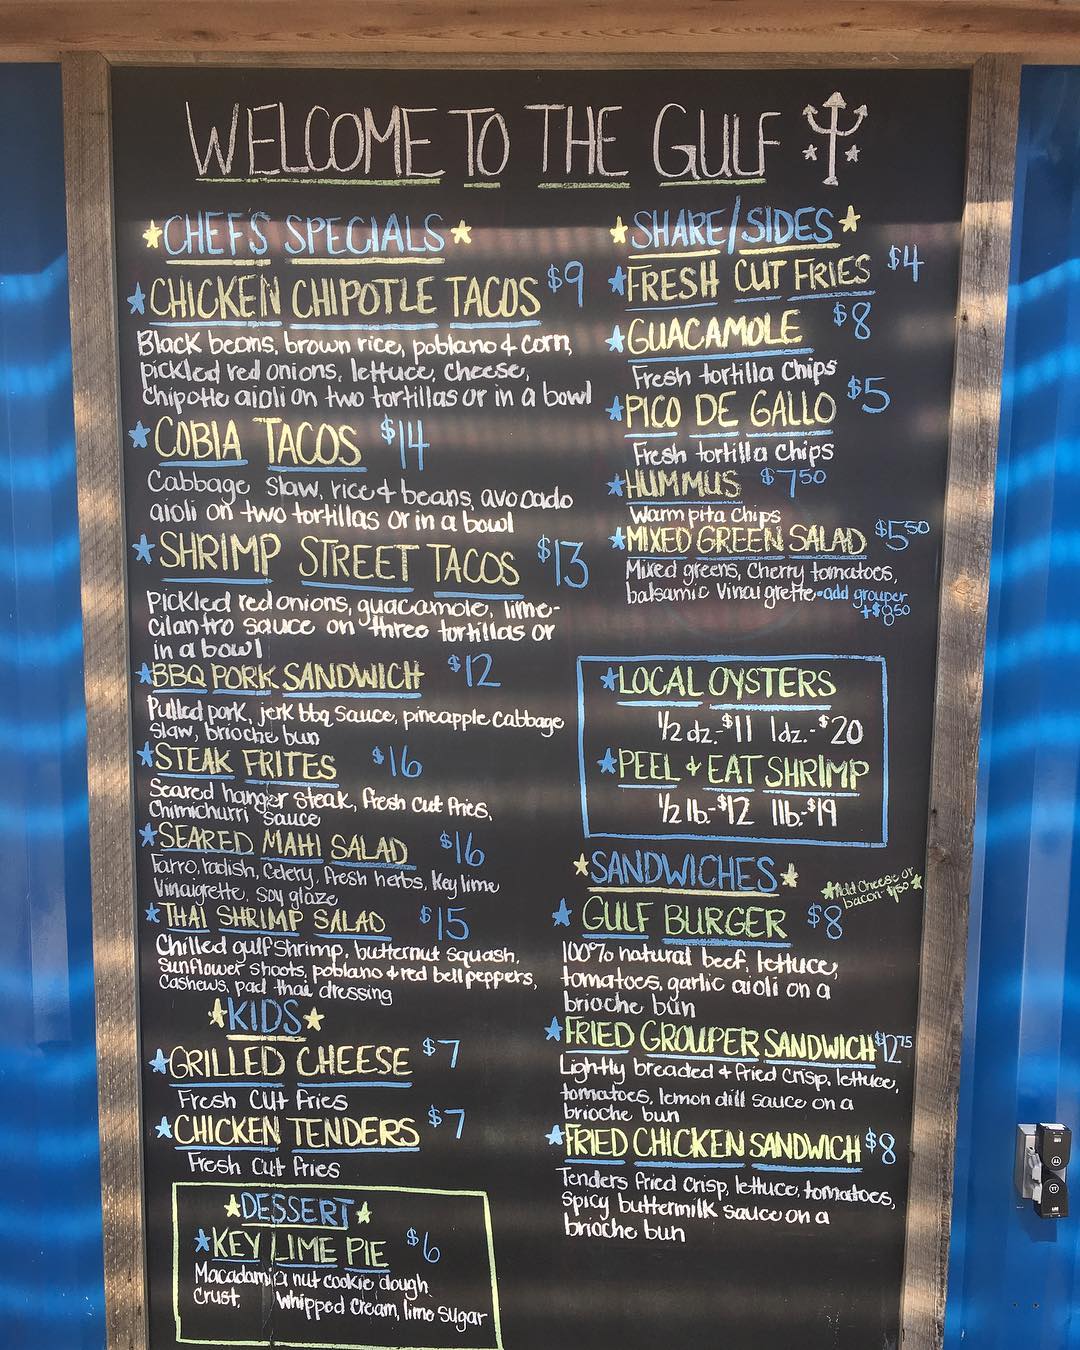 WELCOME TO THE GULF
CHEF'S SPECIALS
CHICKEN CHIPOTLE TACOS $9
Black beans, brown rice, poblano & corn,
pickled red onions, lettuce, cheese,
Chipotle aioli on two tortillas or in a bowl
COBIA TACOS $14
Cabbage slaw, rice & beans, avocado
aioli on two tortillas or in a bowl
SHRIMP STREET TACOS $13
Pickled red onions, guacamole, lime-
cilantro sauce on three tortillas or
in a bowl
BBQ PORK SANDWICH $12
Pulled pork, jerk bbq sauce, pineapple cabbage
slaw, brioche bun
STEAK FRITES $16
Seared hanger steak, fresh cut fries,
Chimichurri sauce
SEARED MAHI SALAD $16
Farro, radish, celery, fresh herbs, key lime
Vinaigrette, soy glaze
THAI SHRIMP SALAD $15
Chilled gulf shrimp, butternut squash,
sunflower shoots, poblano & red bell peppers,
cashews, pad thai dressing
KIDS
GRILLED CHEESE $7
Fresh cut fries
CHICKEN TENDERS $7
Fresh cut fries
DESSERT
KEY LIME PIE $6
Macadamia nut cookie dough
crust, whipped cream, lime sugar
SHARE/SIDES
FRESH CUT FRIES $4
GUACAMOLE $8
Fresh tortilla chips
PICO DE GALLO $5
Fresh tortilla chips
HUMMUS $7.50
Warm pita chips
MIXED GREEN SALAD $5.50
Mixed greens, cherry tomatoes,
balsamic vinaigrette • add grouper
+$8.50
LOCAL OYSTERS
1/2 dz.-$11 1dz.-$20
PEEL & EAT SHRIMP
1/2 lb-$12 1lb-$19
SANDWICHES
Add cheese or
bacon $1.50
GULF BURGER $8
100% natural beef, lettuce,
tomatoes, garlic aioli on a
brioche bun
FRIED GROUPER SANDWICH $12.75
Lightly breaded & fried crisp, lettuce,
tomatoes, lemon dill sauce on a
brioche bun
FRIED CHICKEN SANDWICH $8
Tenders fried crisp, lettuce, tomatoes,
spicy buttermilk sauce on a
brioche bun